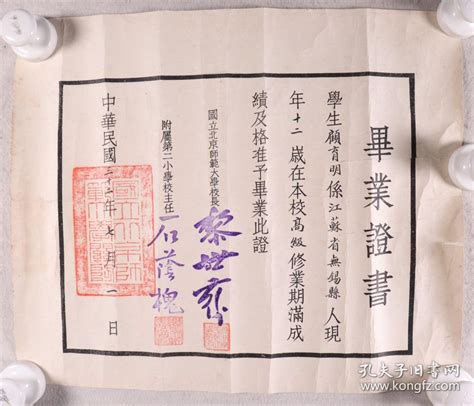 畢業證書
學生顧育明係江蘇省無錫縣人現
年十二歲在本校高級修業期滿成
績及格准予畢業此證
國立北京師範大學校長
黎世蘅
附屬第二小學校主任
石蔭槐
中華民國三十一年七月一日
孔夫子旧书网
www.kongfz.com